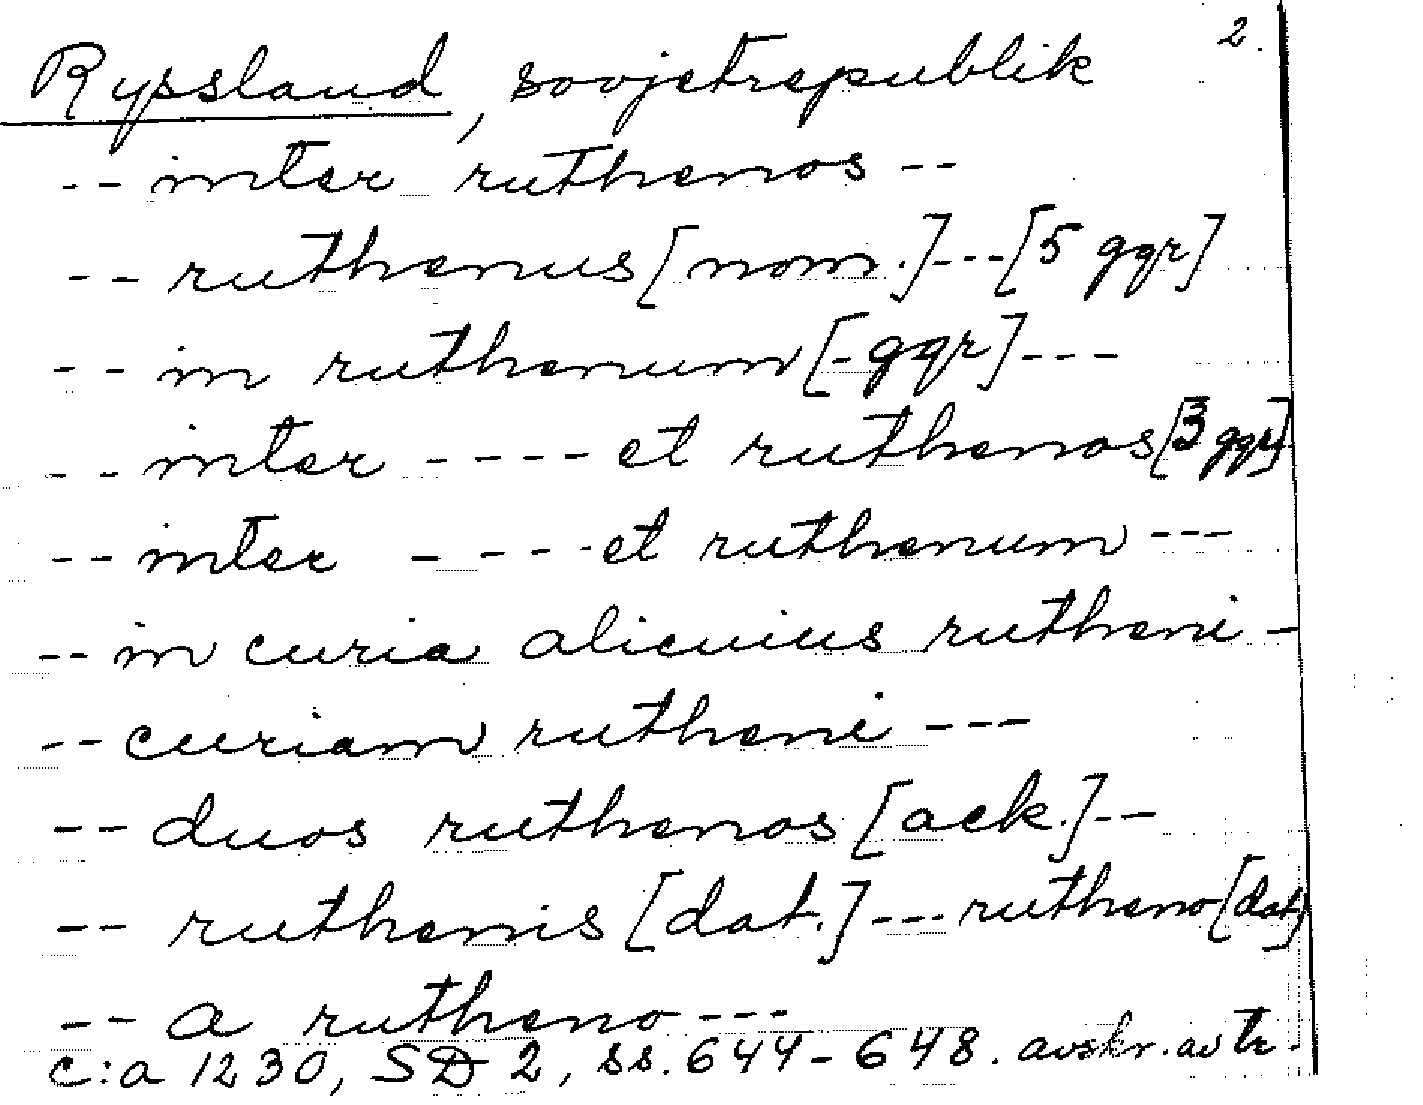 2.
Ryssland, sovjetrepublik
-- inter ruthenos --
-- ruthenus [nom.]---[5 ggr]
-- in ruthenum [-ggr]---
-- inter ---- et ruthenos [3 ggr]
-- inter ---- et ruthenum ---
-- in curia alicuius rutheni -
-- curiam rutheni ---
-- duos ruthenos [ack.]--
-- ruthenis [dat.]--- rutheno [dat.]
-- a rutheno ---
c:a 1230, SD 2, ss. 644-648. avskr. av tr.